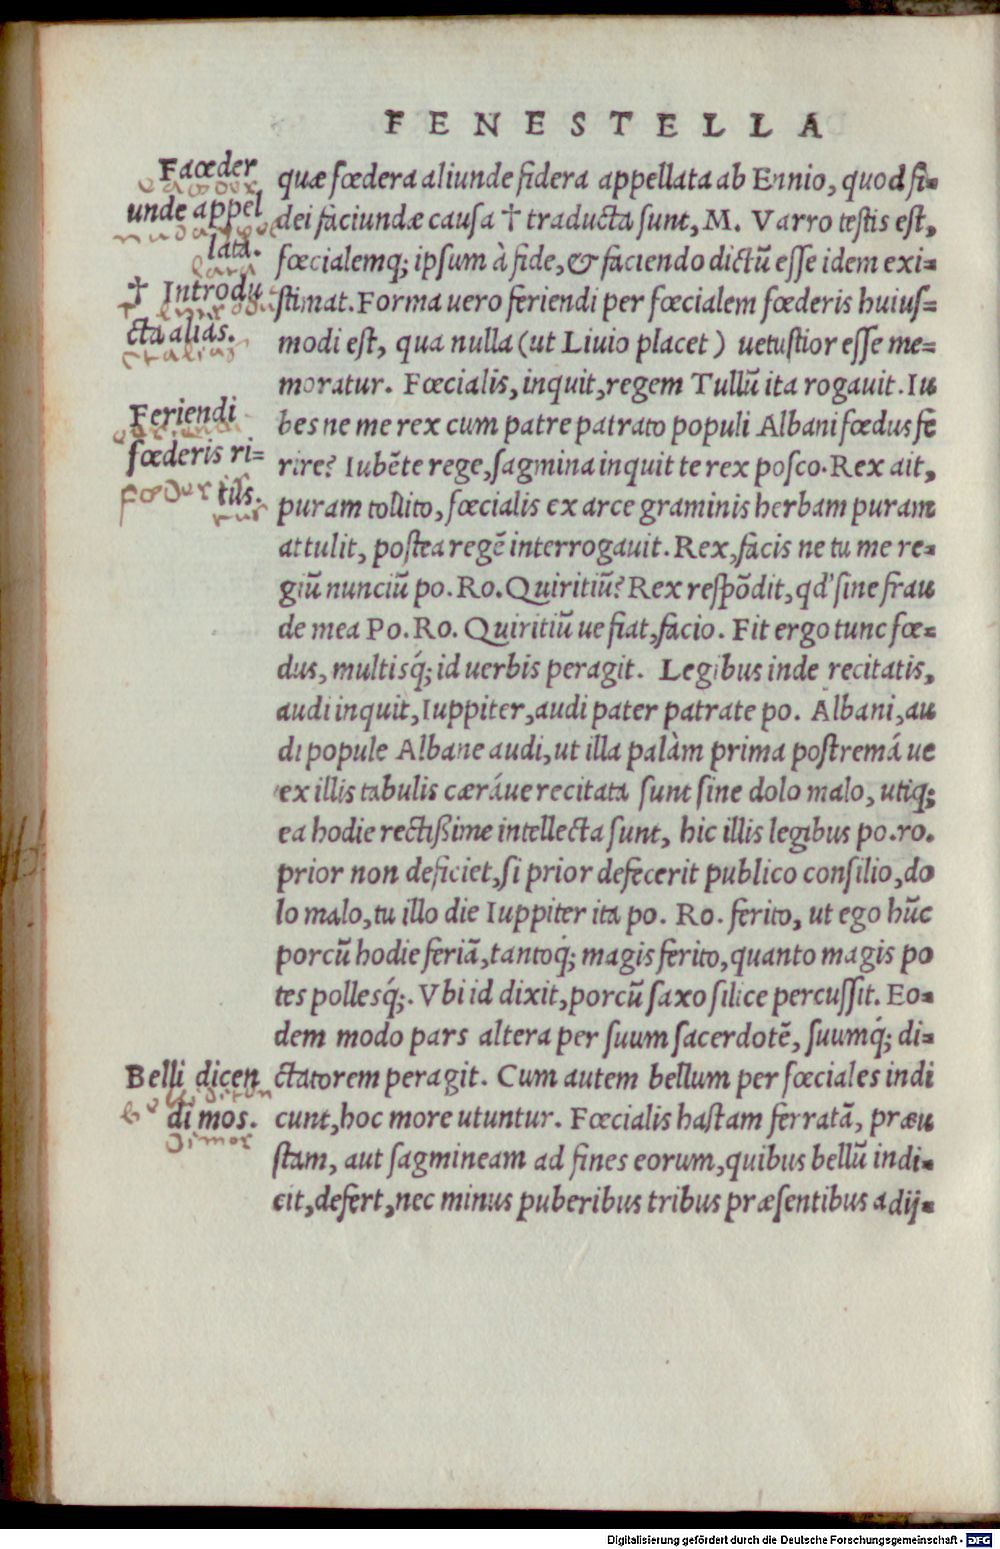 FENESTELLA
Faœder
unde appel
lata.
† Introdu
cta alias.
Feriendi
fœderis ri=
tus.
Belli dicen
di mos.
quæ fœdera aliunde fidera appellata ab Ennio, quod fi=
dei faciundæ causa † traducta sunt, M. Varro testis est,
fœcialemq́; ipsum à fide, & faciendo dictũ esse idem exi=
stimat. Forma uero feriendi per fœcialem fœderis huius=
modi est, qua nulla (ut Liuio placet) uetustior esse me=
moratur. Fœcialis, inquit, regem Tullũ ita rogauit. Iu
bes ne me rex cum patre patrato populi Albani fœdus fe
rire? Iubẽte rege, sagmina inquit te rex posco. Rex ait,
puram tollito, fœcialis ex arce graminis herbam puram
attulit, postea regẽ interrogauit. Rex, facis ne tu me re=
giũ nunciũ po. Ro. Quiritiũ? Rex respõdit, qd' sine frau
de mea Po. Ro. Quiritiũ ue fiat, facio. Fit ergo tunc fœ=
dus, multisq́; id uerbis peragit. Legibus inde recitatis,
audi inquit, Iuppiter, audi pater patrate po. Albani, au
di popule Albane audi, ut illa palàm prima postremá ue
ex illis tabulis cæráue recitata sunt sine dolo malo, utiq;
ea hodie rectißime intellecta sunt, hic illis legibus po. ro.
prior non deficiet, si prior defecerit publico consilio, do
lo malo, tu illo die Iuppiter ita po. Ro. ferito, ut ego hũc
porcũ hodie feriã, tantoq́; magis ferito, quanto magis po
tes pollesq́;. Vbi id dixit, porcũ saxo silice percussit. Eo=
dem modo pars altera per suum sacerdotẽ, suumq́; di=
ctatorem peragit. Cum autem bellum per fœciales indi
cunt, hoc more utuntur. Fœcialis hastam ferratã, præu
stam, aut sagmineam ad fines eorum, quibus bellũ indi=
cit, defert, nec minus puberibus tribus præsentibus adij=
Digitalisierung gefördert durch die Deutsche Forschungsgemeinschaft - DFG